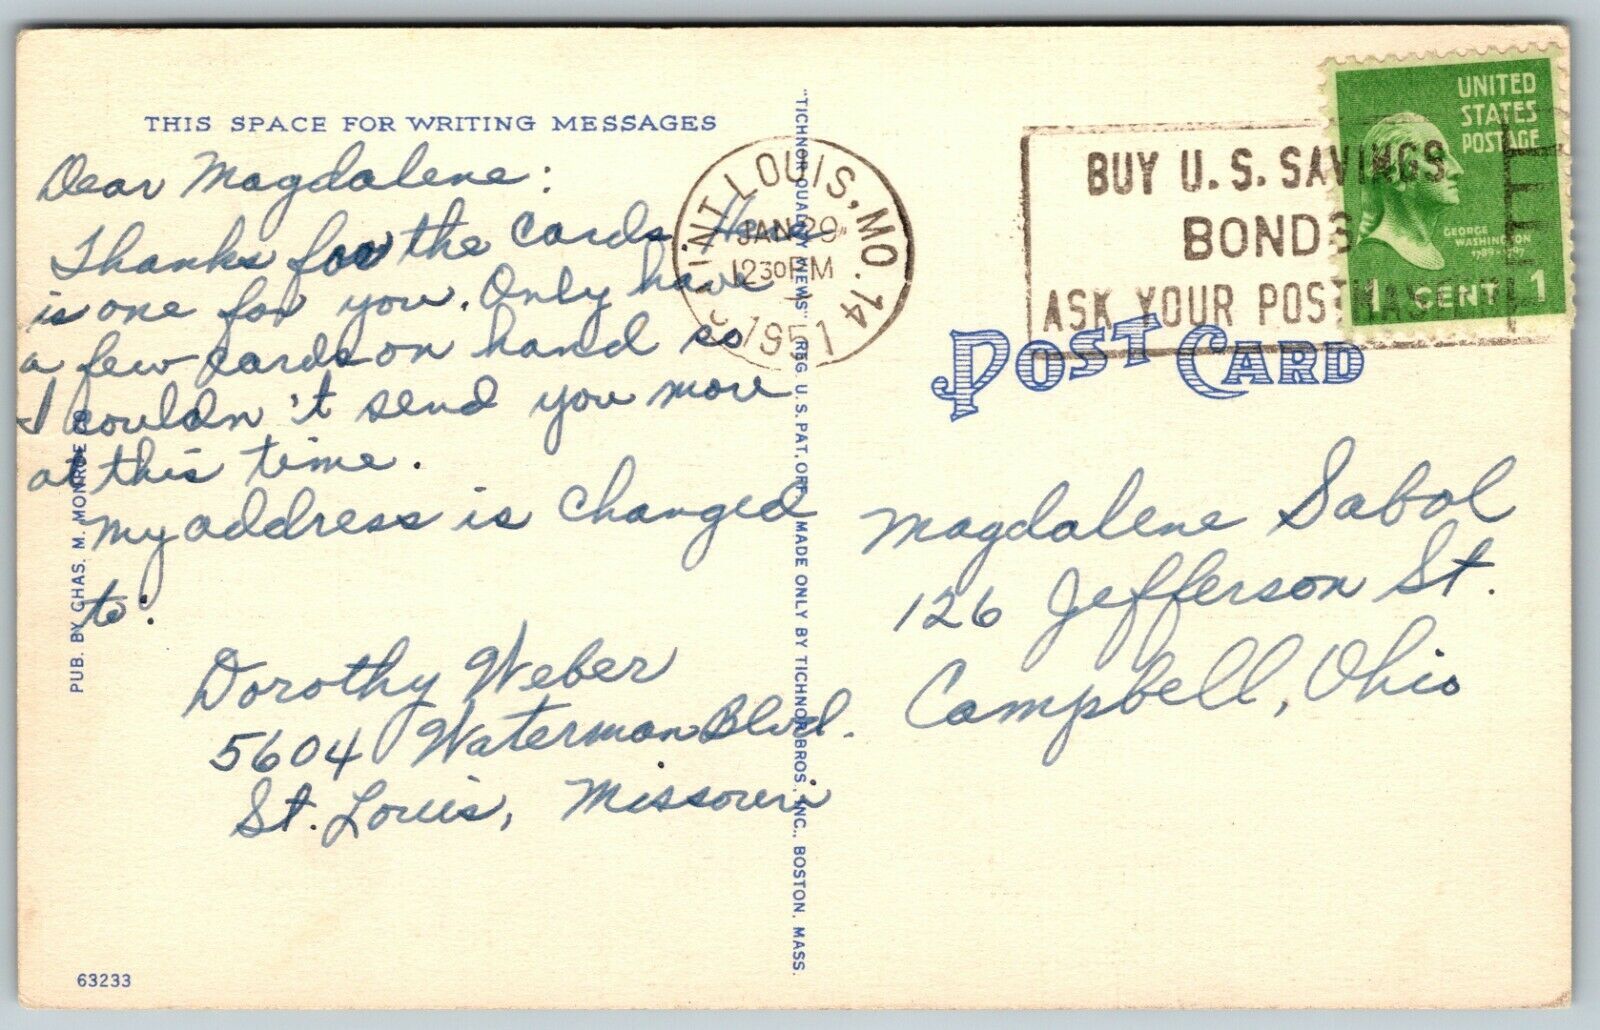 THIS SPACE FOR WRITING MESSAGES
Dear Magdalene:
Thanks for the cards. Here
is one for you. Only have
a few cards on hand so
I couldn't send you more
at this time.
My address is changed
to:
Dorothy Weber
5604 Waterman Blvd.
St. Louis, Missouri
PUB. BY CHAS. M. MONROE
63233
"TICHNOR QUALITY VIEWS" REG. U.S. PAT. OFF. MADE ONLY BY TICHNOR BROS., INC., BOSTON, MASS.
SAINT LOUIS, MO. 14
JAN 29
12 30 PM
1951
BUY U.S. SAVINGS
BONDS
ASK YOUR POSTMASTER
UNITED
STATES
POSTAGE
GEORGE
WASHINGTON
1789-1797
1 CENT 1
POST CARD
Magdalene Sabol
126 Jefferson St.
Campbell, Ohio